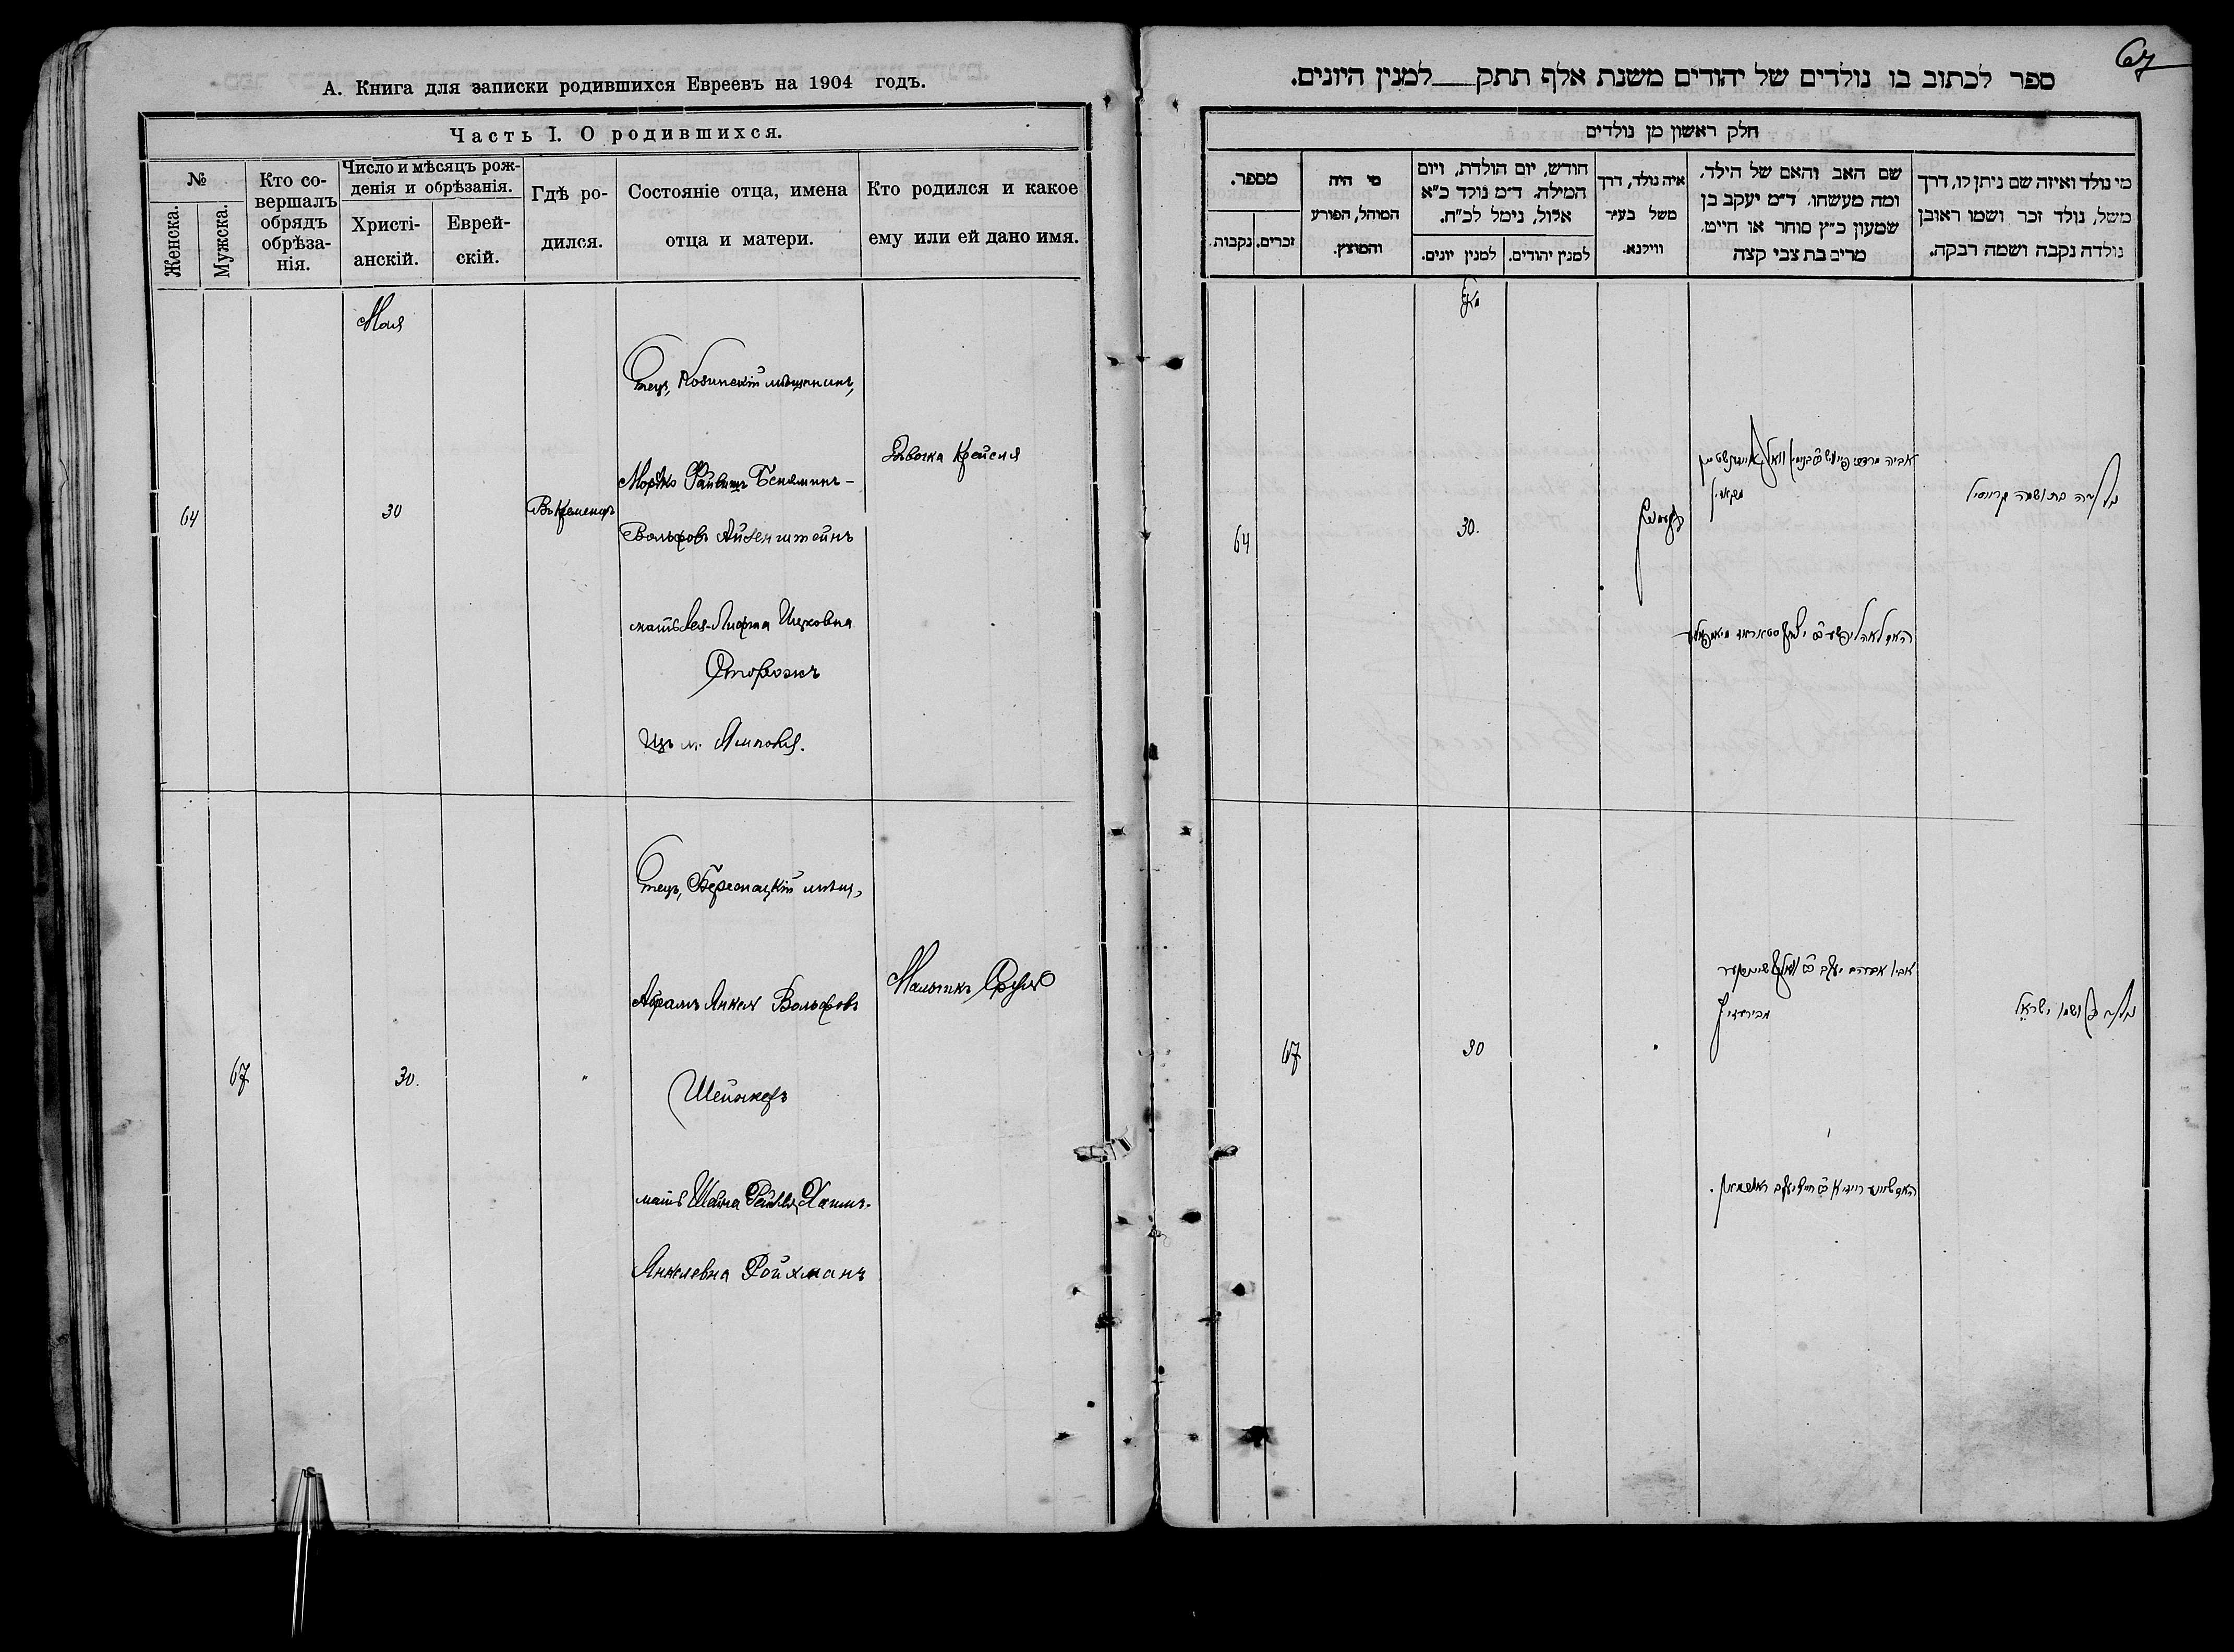 А. Книга для записки родившихся Евреевъ на 1904 годъ.
Часть I. О родившихся.
№
Женска.
Мужска.
Кто со-
вершалъ
обрядъ
обрѣза-
нія.
Число и мѣсяцъ рож-
денія и обрѣзанія.
Христі-
анскій.
Еврей-
скій.
Гдѣ ро-
дился.
Состояніе отца, имена
отца и матери.
Кто родился и какое
ему или ей дано имя.
Мая
64
30
Въ Кременцѣ
Отецъ, мѣщанинъ,
Мордко Файвишъ Беніаминъ-
Вольфовъ Айзенштейнъ
мать Лея-Лифша Ицковна
Сторожъ
Изъ м. Ямполя.
Дѣвочка Крейсля
67
30.
"
Отецъ, мѣщ,
Абрамъ Янкель Вольфовъ
Шейнкеръ
мать Шейна Рейзля Хаимъ-
Янкелевна Ройхманъ
Мальчикъ Сруль
67
ספר לכתוב בו נולדים של יהודים משנת אלף תתק למנין היונים.
חלק ראשון מן נולדים
מספר.
נקבות
זכרים.
מי היה
המוהל, הפורע
והמוצץ.
חודש, יום הולדת, ויום
המילה. ד״מ נולד כ״א
אלול, נימל לכ״ח.
למנין יונים.
למנין יהודים.
איה נולד, דרך
משל בעיר
ווילנא.
שם האב והאם של הילד,
ומה מעשהו. ד״מ יעקב בן
שמעון כ״ץ סוחר או חייט.
מרים בת צבי קצה
מי נולד ואיזה שם ניתן לו, דרך
משל, נולד זכר ושמו ראובן
נולדה נקבה ושמה רבקה.
מאי
64
30.
נולדה בת ושמה קרייסיל
67
30
אביו אברהם יעקב וואלף שיינקער
נולד בן ושמו ישראל